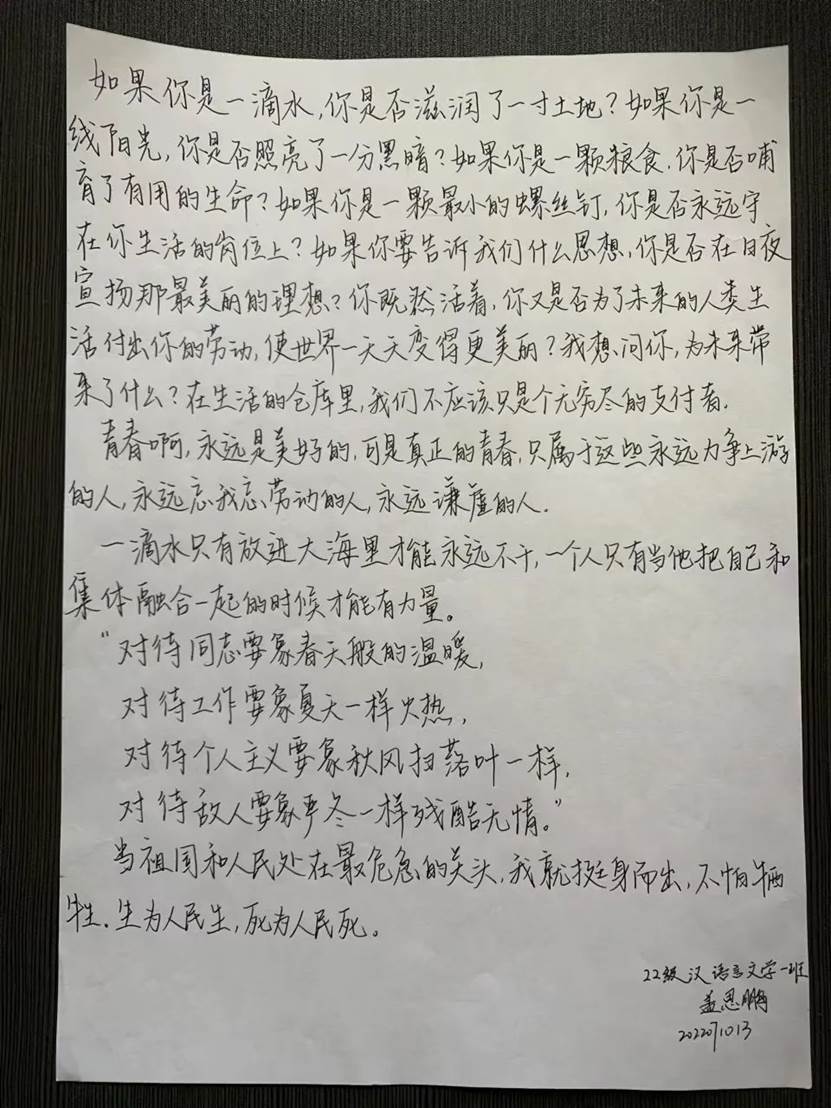 如果你是一滴水,你是否滋润了一寸土地?如果你是一
线阳光,你是否照亮了一分黑暗?如果你是一颗粮食,你是否哺
育了有用的生命?如果你是一颗最小的螺丝钉,你是否永远守
在你生活的岗位上?如果你要告诉我们什么思想,你是否在日夜
宣扬那最美丽的理想?你既然活着,你又是否为了未来的人类生
活付出你的劳动,使世界一天天变得更美丽?我想问你,为未来带
来了什么?在生活的仓库里,我们不应该只是个无穷尽的支付者.
青春啊,永远是美好的,可是真正的青春,只属于这些永远力争上游
的人,永远忘我忘劳动的人,永远谦虚的人.
一滴水只有放进大海里才能永远不干,一个人只有当他把自己和
集体融合一起的时候才能有力量。
“对待同志要象春天般的温暖,
对待工作要象夏天一样火热,
对待个人主义要象秋风扫落叶一样,
对待敌人要象严冬一样残酷无情。”
当祖国和人民处在最危急的关头,我就挺身而出,不怕牺
牲.生为人民生,死为人民死。
22级汉语言文学一班
孟恩鹏
20221013